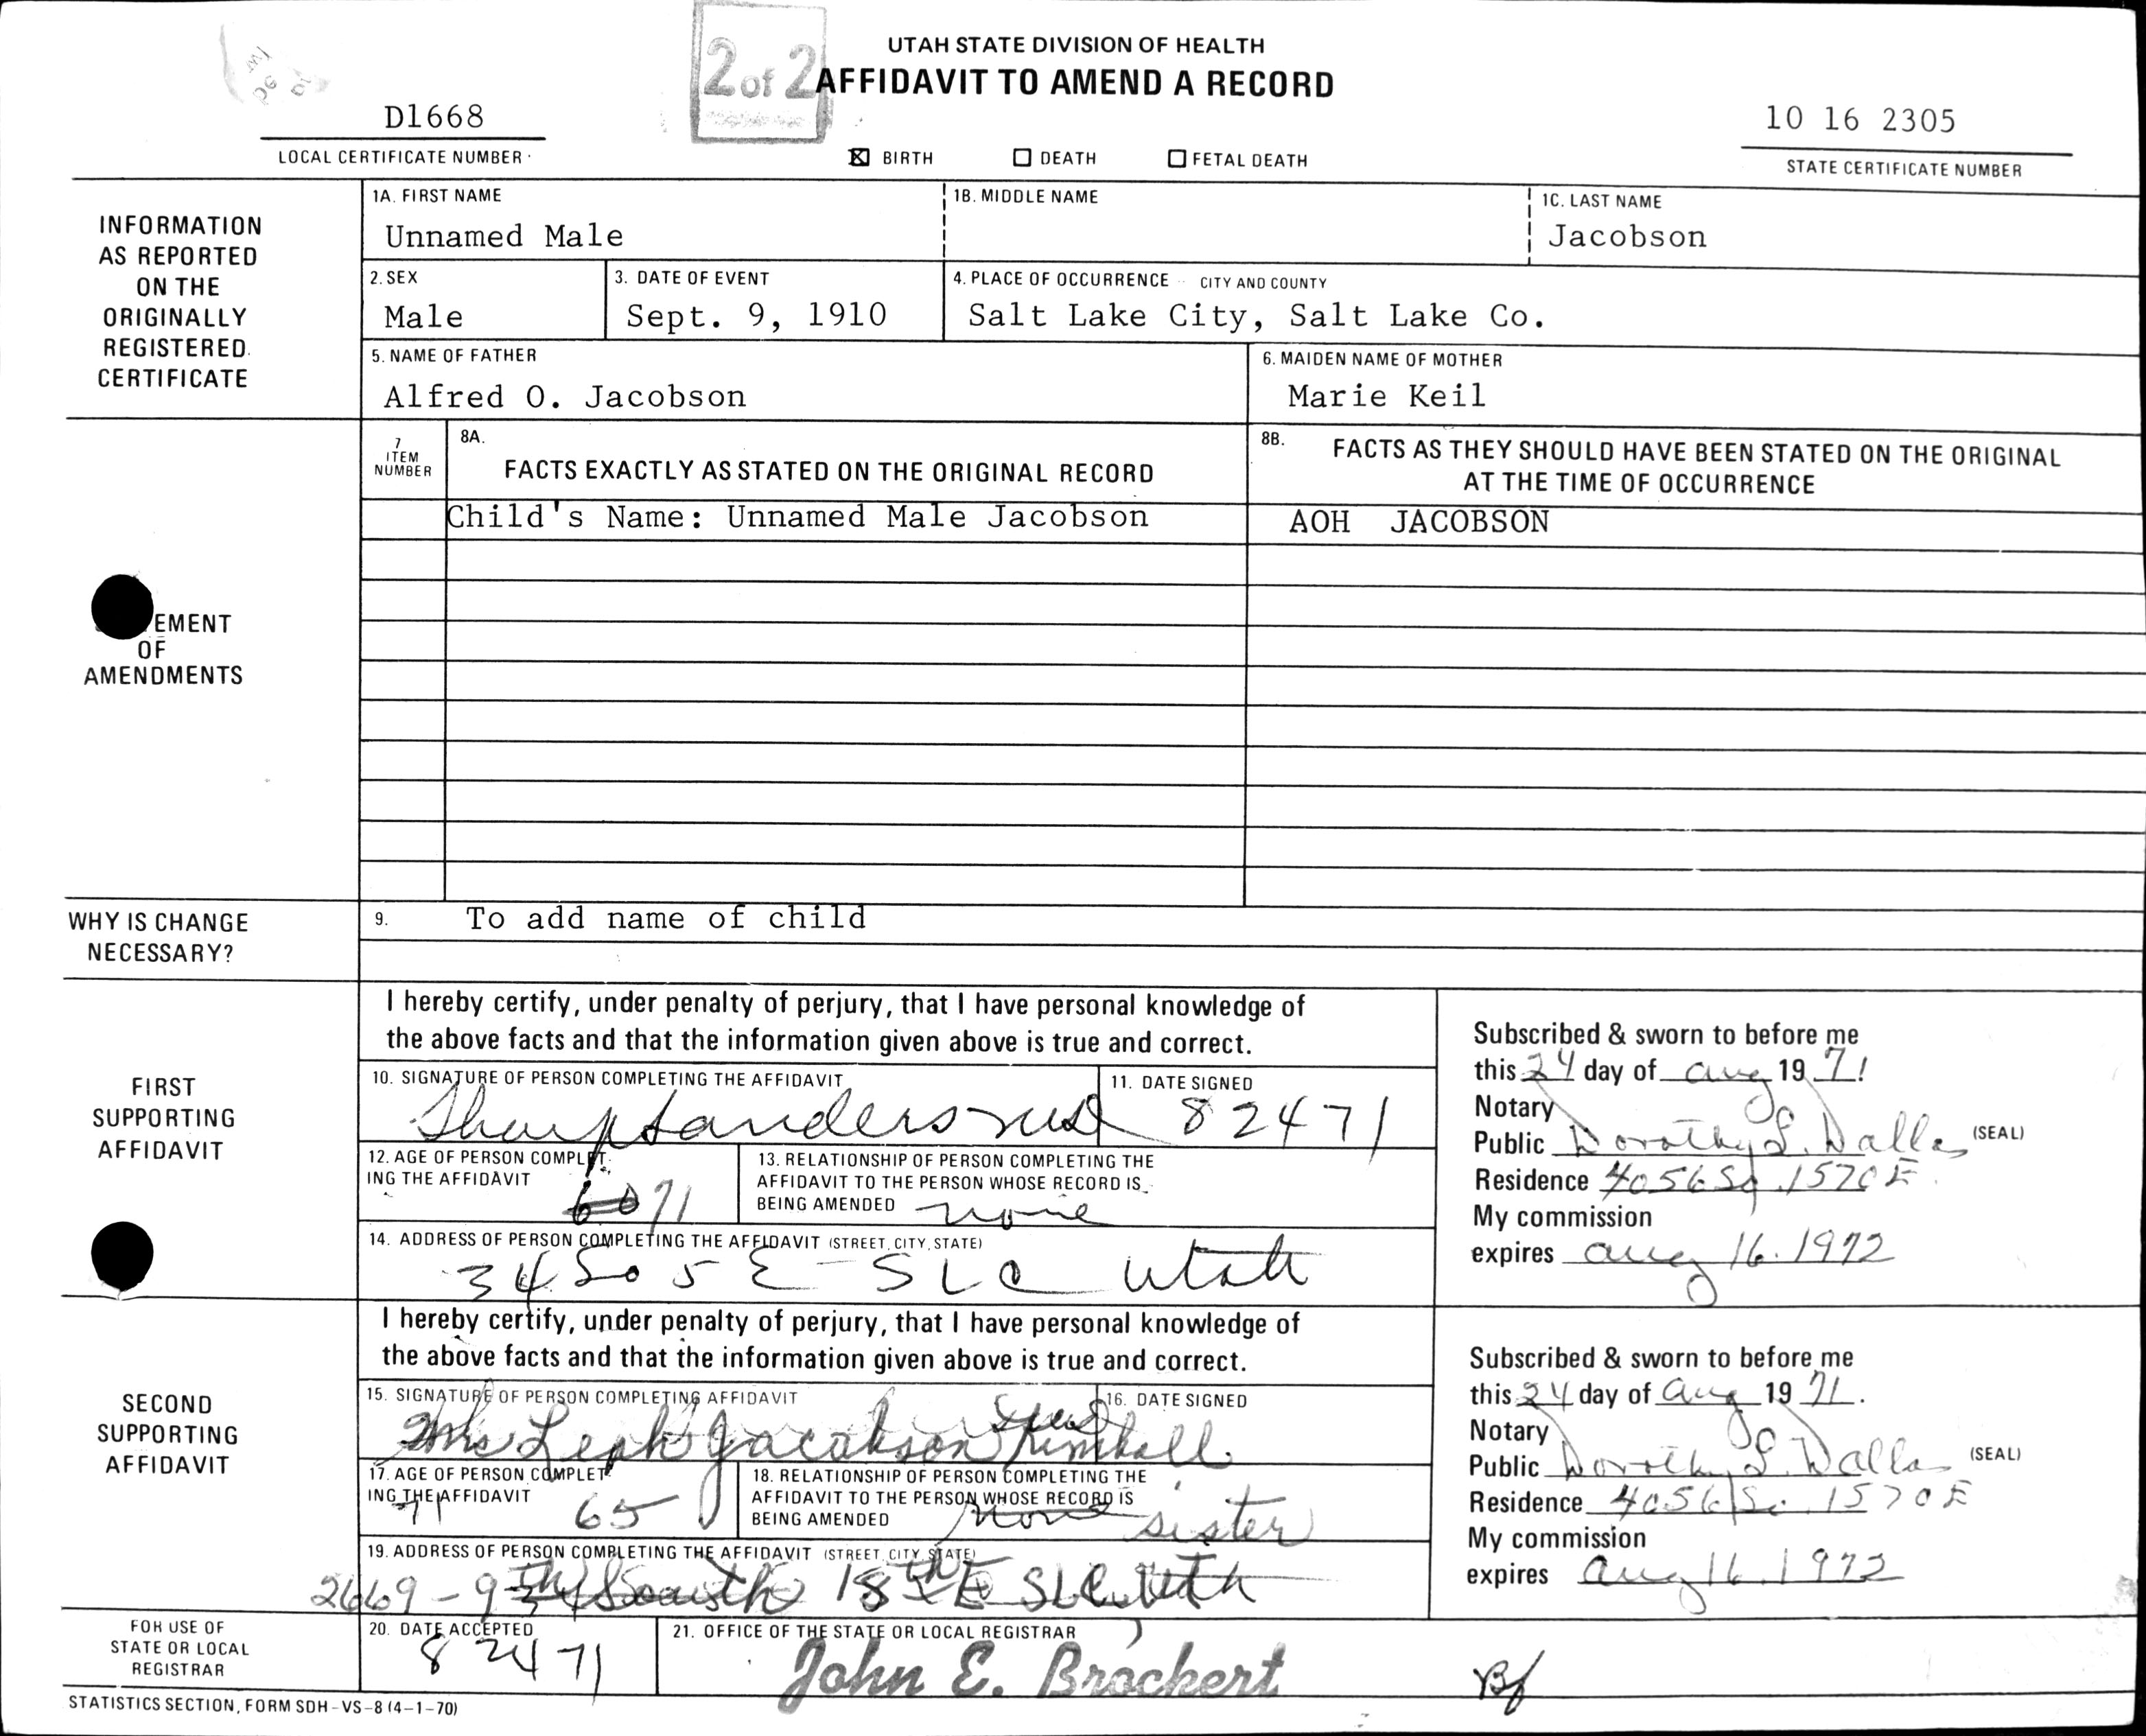 2 of 2
UTAH STATE DIVISION OF HEALTH
AFFIDAVIT TO AMEND A RECORD
D1668
LOCAL CERTIFICATE NUMBER
☒ BIRTH ☐ DEATH ☐ FETAL DEATH
10 16 2305
STATE CERTIFICATE NUMBER
INFORMATION
AS REPORTED
ON THE
ORIGINALLY
REGISTERED
CERTIFICATE
1A. FIRST NAME
Unnamed Male
1B. MIDDLE NAME
1C. LAST NAME
Jacobson
2. SEX
Male
3. DATE OF EVENT
Sept. 9, 1910
4. PLACE OF OCCURRENCE -- CITY AND COUNTY
Salt Lake City, Salt Lake Co.
5. NAME OF FATHER
Alfred O. Jacobson
6. MAIDEN NAME OF MOTHER
Marie Keil
EMENT
OF
AMENDMENTS
7
ITEM
NUMBER
8A.
FACTS EXACTLY AS STATED ON THE ORIGINAL RECORD
8B.
FACTS AS THEY SHOULD HAVE BEEN STATED ON THE ORIGINAL
AT THE TIME OF OCCURRENCE
Child's Name: Unnamed Male Jacobson
AOH JACOBSON
WHY IS CHANGE
NECESSARY?
9. To add name of child
FIRST
SUPPORTING
AFFIDAVIT
I hereby certify, under penalty of perjury, that I have personal knowledge of
the above facts and that the information given above is true and correct.
10. SIGNATURE OF PERSON COMPLETING THE AFFIDAVIT
Sanders
11. DATE SIGNED
8 24 71
12. AGE OF PERSON COMPLET-
ING THE AFFIDAVIT
60 71
13. RELATIONSHIP OF PERSON COMPLETING THE
AFFIDAVIT TO THE PERSON WHOSE RECORD IS
BEING AMENDED none
14. ADDRESS OF PERSON COMPLETING THE AFFIDAVIT (STREET, CITY, STATE)
34 So 5 E - SLC Utah
Subscribed & sworn to before me
this 24 day of Aug 19 71
Notary
Public Dorothy S. Dalla (SEAL)
Residence 4056 So. 1570 E.
My commission
expires Aug 16. 1972
SECOND
SUPPORTING
AFFIDAVIT
I hereby certify, under penalty of perjury, that I have personal knowledge of
the above facts and that the information given above is true and correct.
15. SIGNATURE OF PERSON COMPLETING AFFIDAVIT
Mrs Leah Jacobson Kimball
16. DATE SIGNED
17. AGE OF PERSON COMPLET-
ING THE AFFIDAVIT
71 65
18. RELATIONSHIP OF PERSON COMPLETING THE
AFFIDAVIT TO THE PERSON WHOSE RECORD IS
BEING AMENDED none sister
19. ADDRESS OF PERSON COMPLETING THE AFFIDAVIT (STREET, CITY, STATE)
2669 - 9 South 18th E SLC Utah
Subscribed & sworn to before me
this 24 day of Aug 19 71.
Notary
Public Dorothy S. Dalla (SEAL)
Residence 4056 So. 1570 E
My commission
expires Aug 16. 1972
FOR USE OF
STATE OR LOCAL
REGISTRAR
20. DATE ACCEPTED
8 24 71
21. OFFICE OF THE STATE OR LOCAL REGISTRAR
John E. Brockert
Bf
STATISTICS SECTION, FORM SDH-VS-8 (4-1-70)